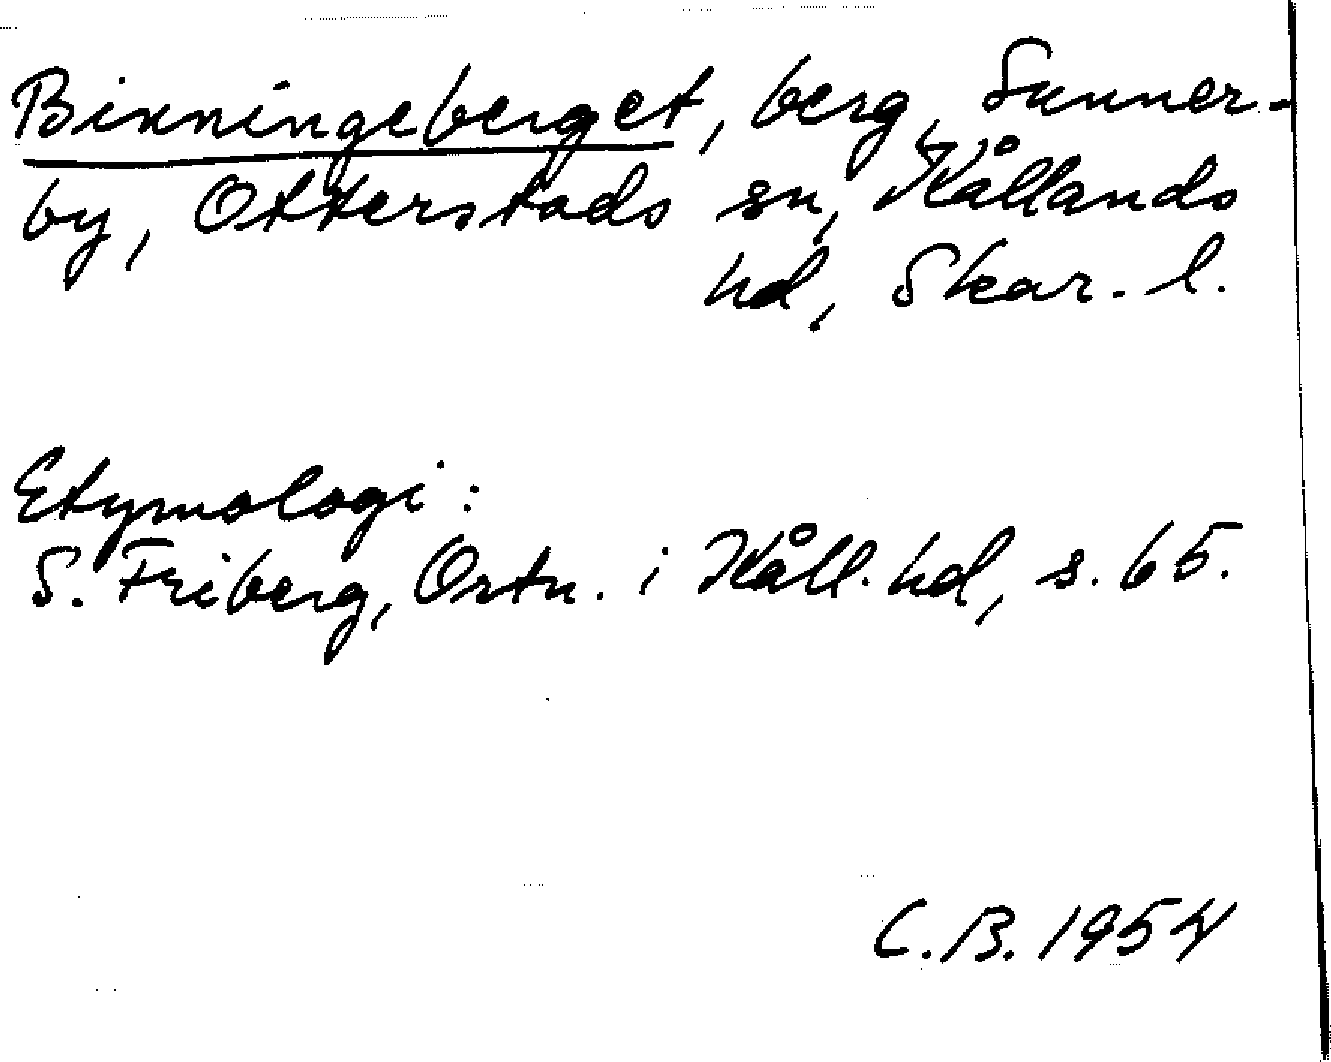 Binningeberget, berg, Sunner-
by, Otterstads sn, Kållands
hd, Skar. l.
Etymologi:
S. Friberg, Ortn. i Kåll. hd, s. 65.
C.B. 1954